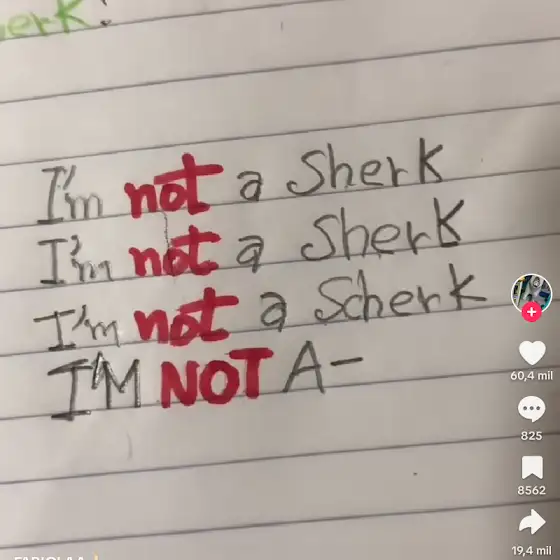 erk!
I'm not a Sherk
I'm not a Sherk
I'm not a Scherk
I'M NOT A-
60,4 mil
825
8562
19,4 mil